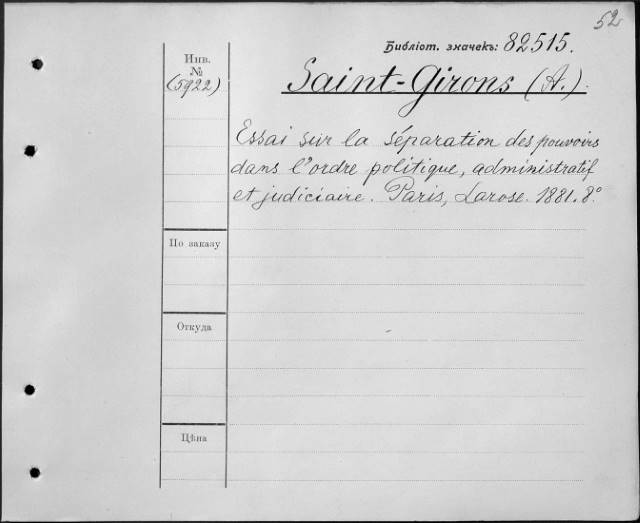 52
Библіот. значекъ: 82515.
Инв.
№
(5922)
Saint-Girons (A.)
Essai sur la séparation des pouvoirs
dans l'ordre politique, administratif
et judiciaire. Paris, Larose. 1881. 8°
По заказу
Откуда
Цѣна